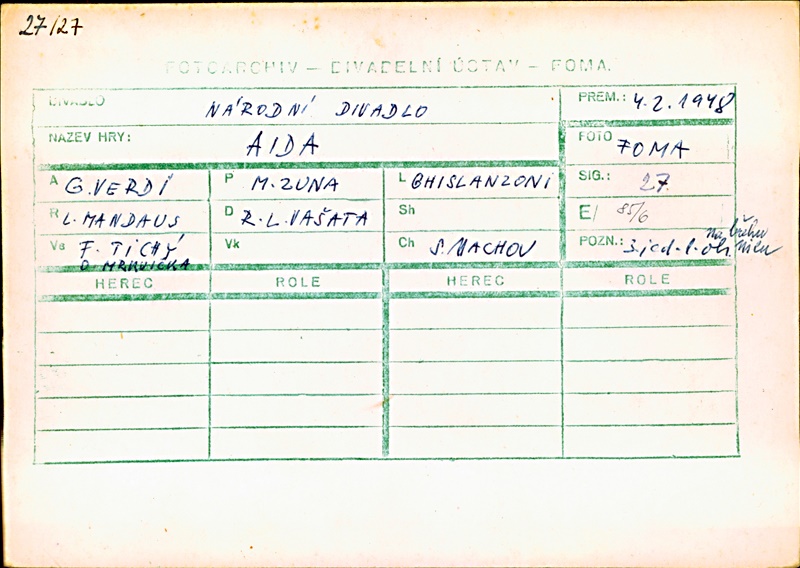 27/27
FOTOARCHIV — DIVADELNÍ ÚSTAV — FOMA.
DIVADLO NÁRODNÍ DIVADLO PREM.: 4.2.1948
NÁZEV HRY: AIDA FOTO FOMA
A G.VERDI P M.ZUNA L GHISLANZONI SIG.: 27
R L.MANDAUS D R.L.VAŠATA Sh E/ 85/6
Vs F. TICHÝ Vk Ch S.MACHOV POZN.: 3.jed.-1.ob. na břehu
O MRKVIČKA Nilu
HEREC ROLE HEREC ROLE